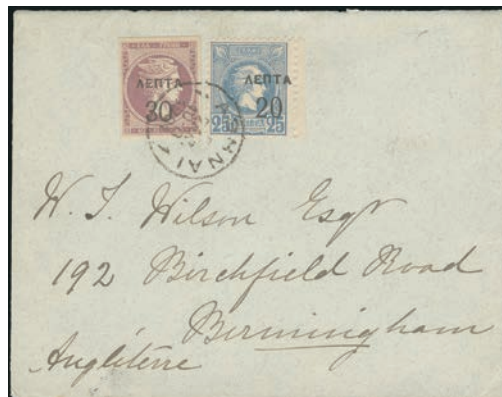 ΛΕΠΤΑ
30
ΛΕΠΤΑ
20
25 25
ΑΘΗΝΑΙ 1
W. J. Wilson Esqr
192 Birchfield Road
Birmingham
Angliterre